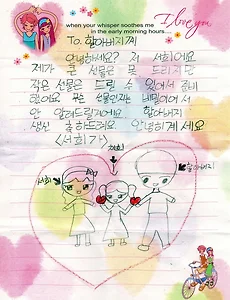 when your whisper soothes me
in the early morning hours....
I love you
To. 할아버지께
안녕하세요? 저 서희에요
제가 큰 선물은 못 드리지만
작은 선물은 드릴 수 있어서 준비
했어요 무슨 선물인지는 비밀이어서
안 알려드릴게에요 할아버지
생신 축하드려요 안녕히계세요
<서희가>
서희
할아버지